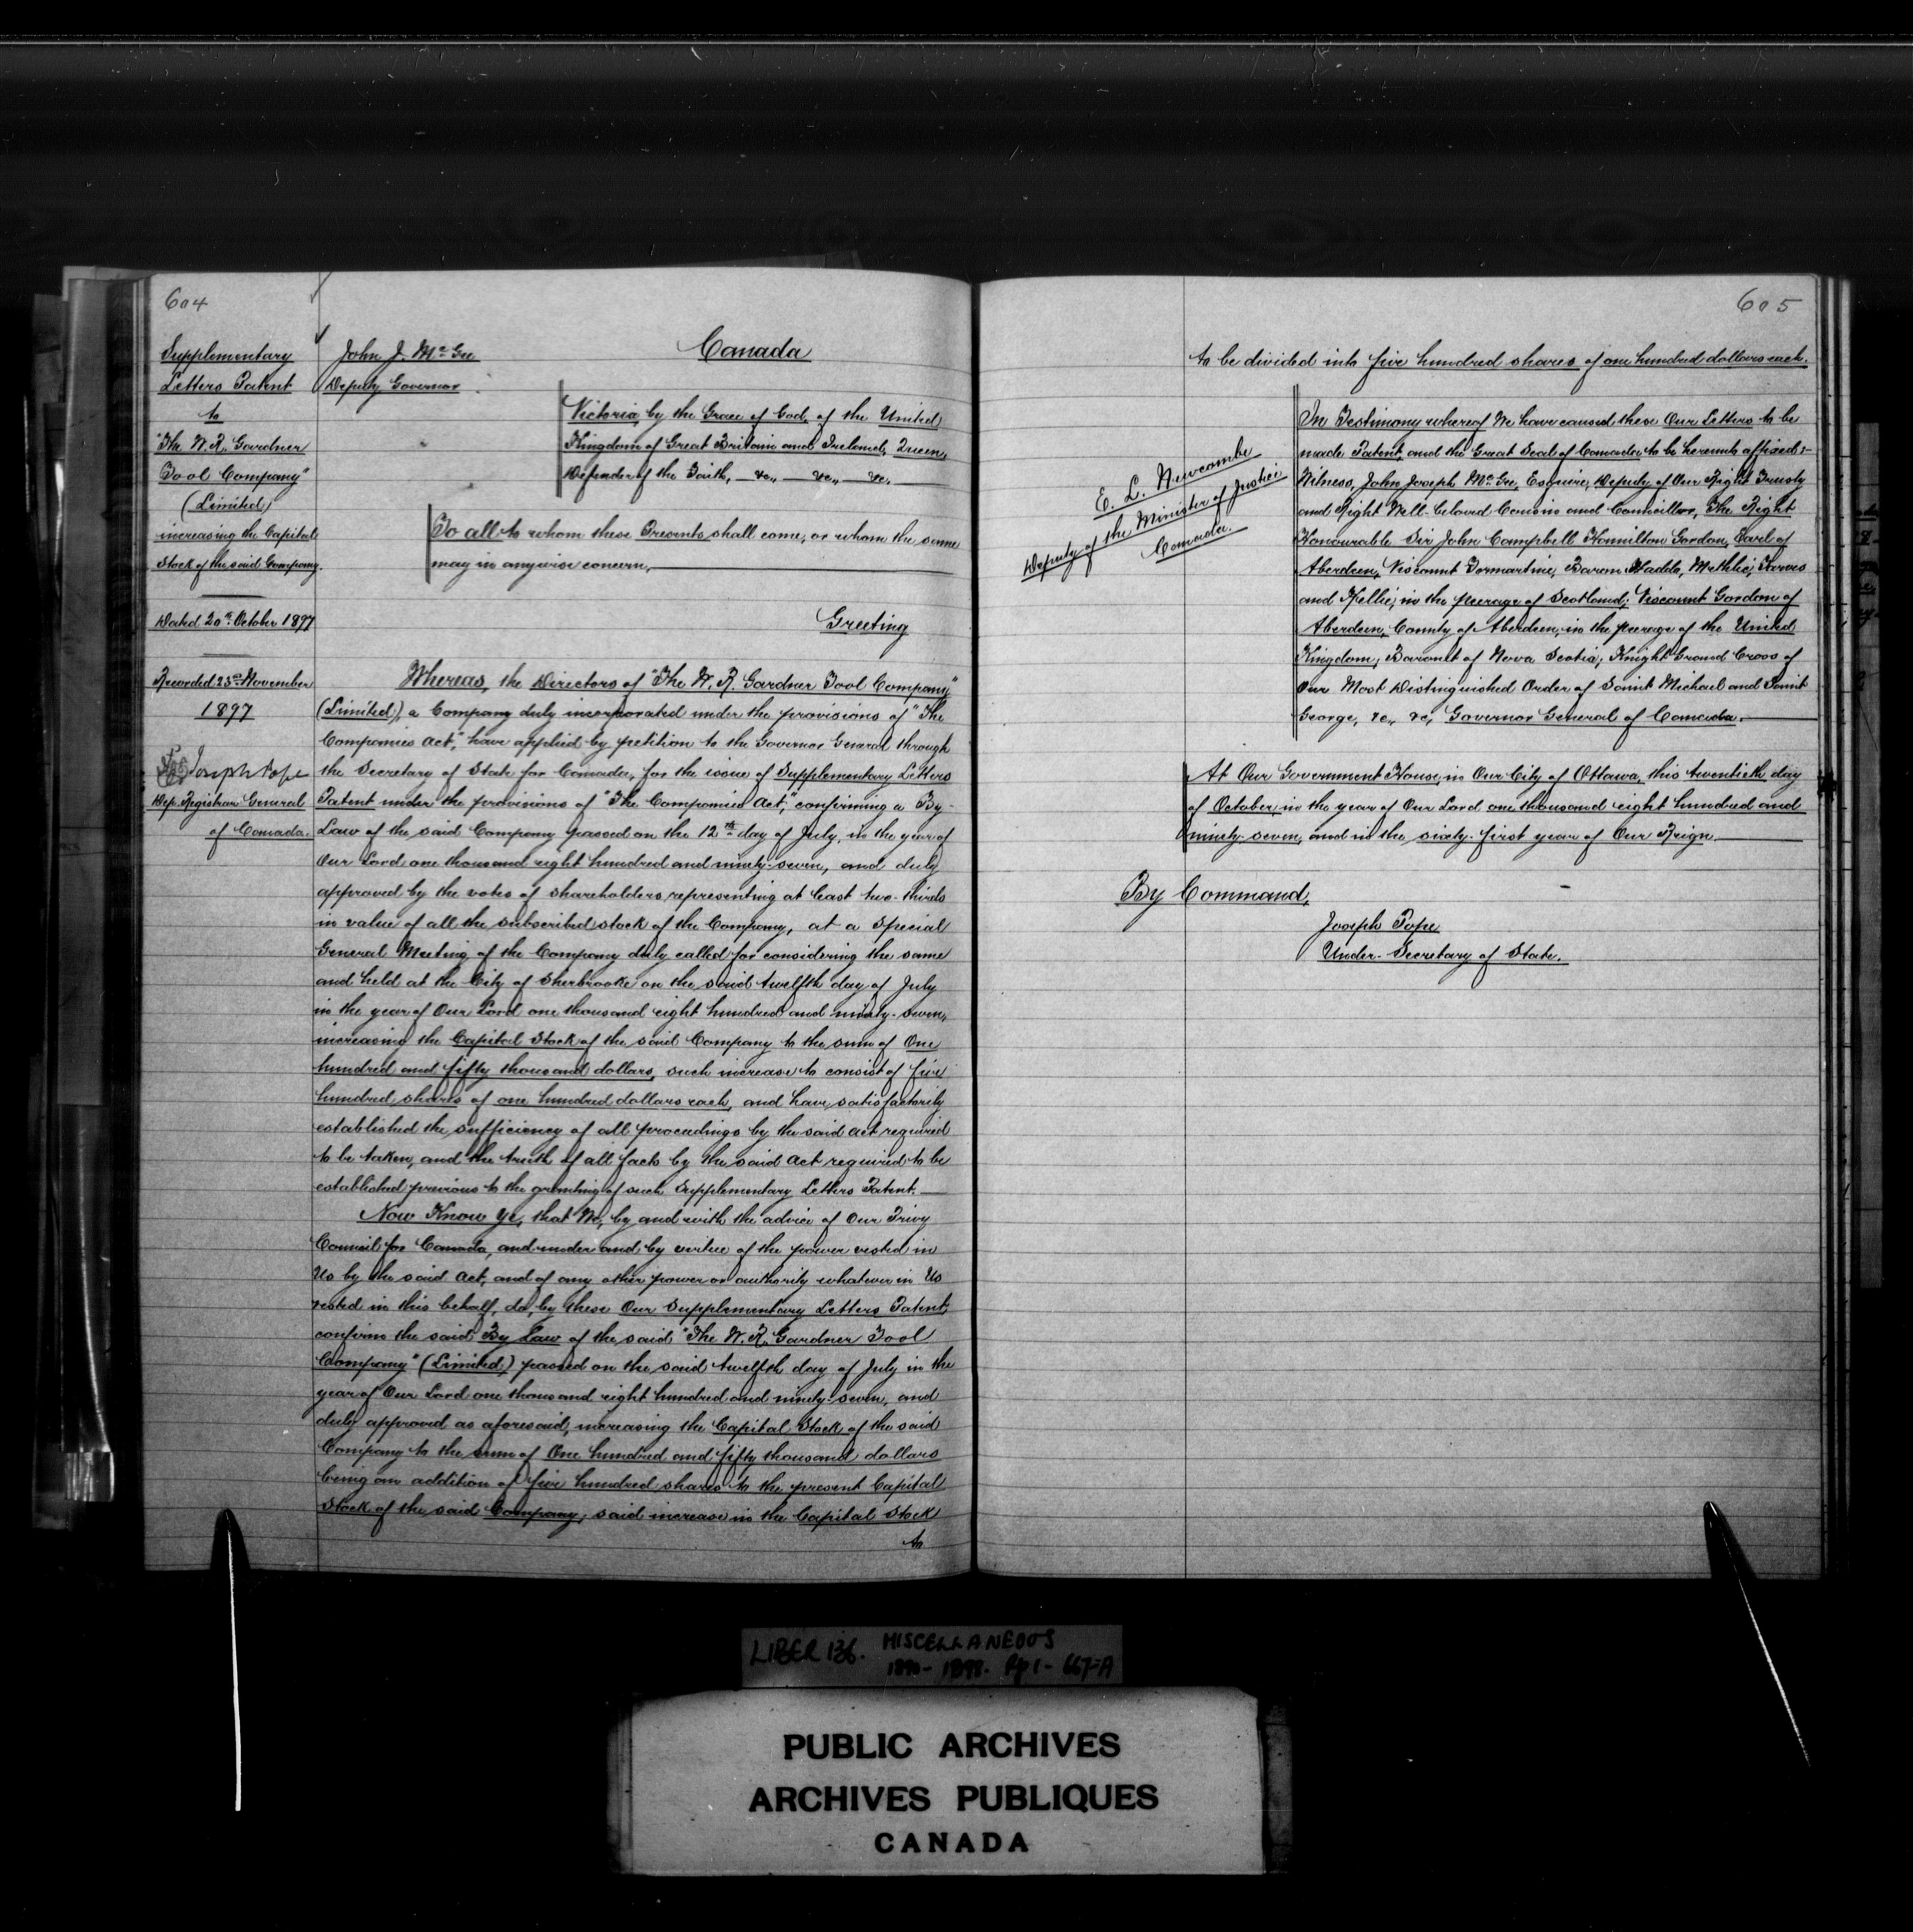 604
Supplementary
Letters Patent
to
"The W. R. Gardner
Tool Company"
(Limited)
increasing the Capital
Stock of the said Company.
Dated 20th October 1897
Recorded 23rd November
1897
Joseph Pope
Dep. Registrar General
of Canada.
John J. McGee
Deputy Governor
Canada
Victoria, by the Grace of God, of the United
Kingdom of Great Britain and Ireland, Queen,
Defender of the Faith, &c., &c., &c.
To all to whom these Presents shall come, or whom the same
may in anywise concern,
Greeting
Whereas, the Directors of "The W. R. Gardner Tool Company"
(Limited), a Company duly incorporated under the provisions of "The
Companies Act," have applied by petition to the Governor General through
the Secretary of State for Canada, for the issue of Supplementary Letters
Patent under the provisions of "The Companies Act," confirming a By-
Law of the said Company passed on the 12th day of July, in the year of
Our Lord one thousand eight hundred and ninety-seven, and duly
approved by the votes of shareholders representing at least two-thirds
in value of all the subscribed stock of the Company, at a Special
General Meeting of the Company duly called for considering the same
and held at the City of Sherbrooke on the said twelfth day of July
in the year of Our Lord one thousand eight hundred and ninety-seven,
increasing the Capital Stock of the said Company to the sum of One
hundred and fifty thousand dollars, such increase to consist of five
hundred shares of one hundred dollars each, and have satisfactorily
established the sufficiency of all proceedings by the said Act required
to be taken, and the truth of all facts by the said Act required to be
established previous to the granting of such Supplementary Letters Patent.
Now Know Ye, that We, by and with the advice of Our Privy
Council for Canada, and under and by virtue of the power vested in
Us by the said Act, and of any other power or authority whatever in Us
vested in this behalf, do, by these Our Supplementary Letters Patent,
confirm the said By Law of the said "The W. R. Gardner Tool
Company" (Limited) passed on the said twelfth day of July in the
year of Our Lord one thousand eight hundred and ninety-seven, and
duly approved as aforesaid, increasing the Capital Stock of the said
Company to the sum of One hundred and fifty thousand dollars
being an addition of five hundred shares to the present Capital
Stock of the said Company, said increase in the Capital Stock
to
605
to be divided into five hundred shares of one hundred dollars each.
E. L. Newcombe
Deputy of the Minister of Justice
Canada.
In Testimony whereof We have caused these Our Letters to be
made Patent, and the Great Seal of Canada to be hereunto affixed:-
Witness, John Joseph McGee, Esquire, Deputy of Our Right Trusty
and Right Well-beloved Cousin and Councillor, The Right
Honourable Sir John Campbell Hamilton Gordon, Earl of
Aberdeen, Viscount Formartine, Baron Haddo, Methlic, Tarves
and Kellie, in the Peerage of Scotland; Viscount Gordon of
Aberdeen, County of Aberdeen, in the Peerage of the United
Kingdom; Baronet of Nova Scotia; Knight Grand Cross of
Our Most Distinguished Order of Saint Michael and Saint
George, &c., &c., Governor General of Canada.
At Our Government House, in Our City of Ottawa, this twentieth day
of October, in the year of Our Lord one thousand eight hundred and
ninety-seven, and in the sixty-first year of Our Reign.
By Command,
Joseph Pope
Under-Secretary of State.
LIBER 136. MISCELLANEOUS
1890-1898. Pp 1-667-A
PUBLIC ARCHIVES
ARCHIVES PUBLIQUES
CANADA